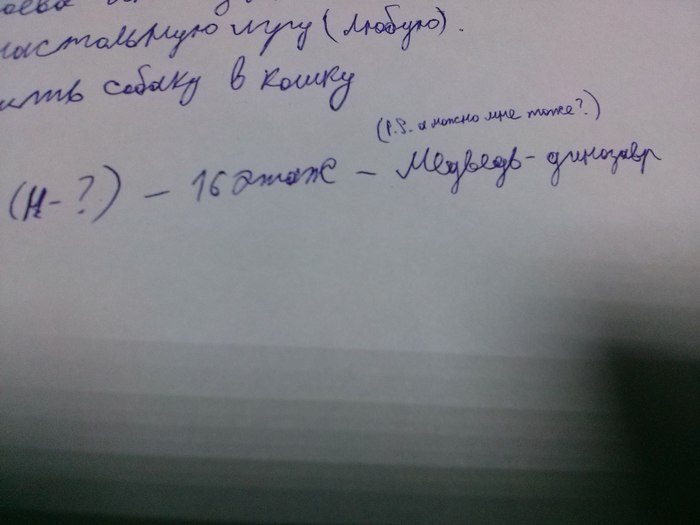 настольную игру (любую).
собаку в кошку
(P.S. а можно мне тоже?)
(Н-?) - 16 этаж - Медведь-динозавр